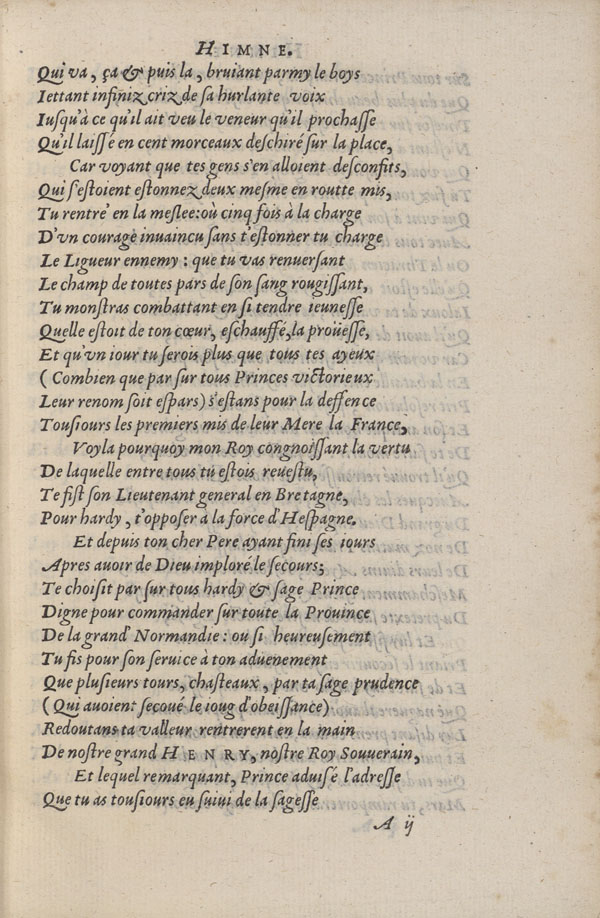 HIMNE.
Qui va, ça & puis la, bruiant parmy le boys
Iettant infiniz criz de sa hurlante voix
Iusqu'à ce qu'il ait veu le veneur qu'il prochasse
Qu'il laisse en cent morceaux deschiré sur la place,
Car voyant que tes gens s'en alloient desconfits,
Qui s'estoient estonnez deux mesme en routte mis,
Tu rentre' en la meslee: où cinq fois à la charge
D'vn courage inuaincu sans t'estonner tu charge
Le Ligueur ennemy: que tu vas renuersant
Le champ de toutes pars de son sang rougissant,
Tu monstras combattant en si tendre ieunesse
Quelle estoit de ton cœur, eschauffé, la proüesse,
Et qu'vn iour tu serois plus que tous tes ayeux
(Combien que par sur tous Princes victorieux
Leur renom soit espars) s'estans pour la deffence
Tousiours les premiers mis de leur Mere la France,
Voyla pourquoy mon Roy congnoissant la vertu
De laquelle entre tous tu estois reuestu,
Te fist son Lieutenant general en Bretagne,
Pour hardy, t'opposer à la force d'Hespagne.
Et depuis ton cher Pere ayant fini ses iours
Apres auoir de Dieu imploré le secours;
Te choisit par sur tous hardy & sage Prince
Digne pour commander sur toute la Prouince
De la grand' Normandie: ou si heureusement
Tu fis pour son seruice à ton aduenement
Que plusieurs tours, chasteaux, par ta sage prudence
(Qui auoient secoué le ioug d'obeissance)
Redoutans ta valleur rentrerent en la main
De nostre grand HENRY, nostre Roy Souuerain,
Et lequel remarquant, Prince aduisé l'adresse
Que tu as tousiours eu suiui de la sagesse
A ij